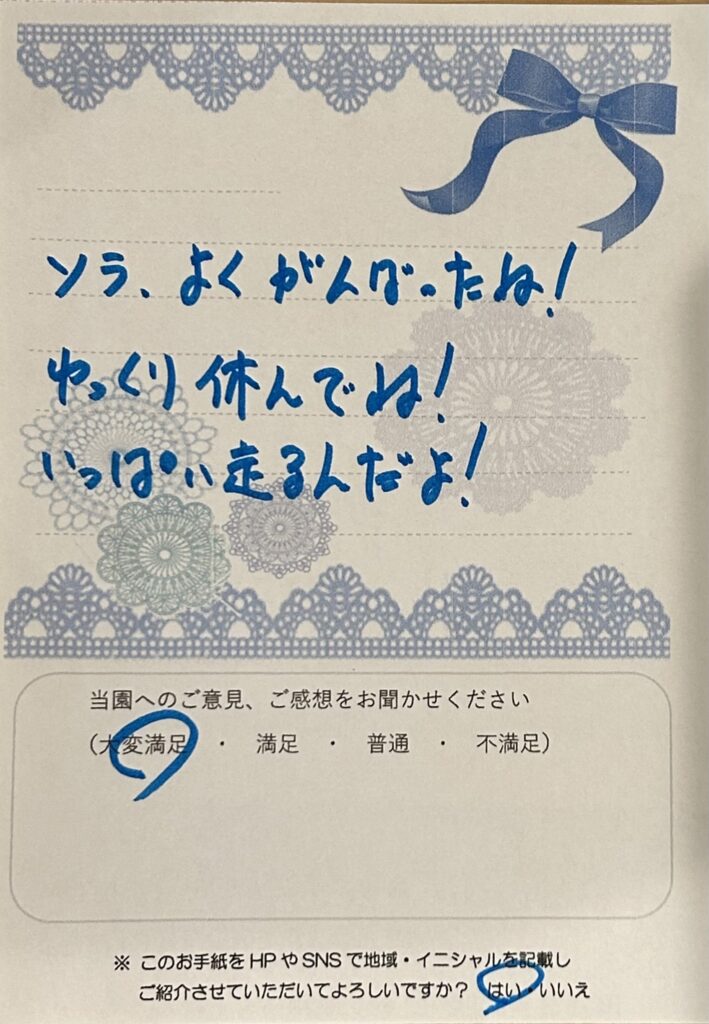 ソラ、よくがんばったね!
ゆっくり休んでね!
いっぱい走るんだよ!
当園へのご意見、ご感想をお聞かせください
(大変満足 ・ 満足 ・ 普通 ・ 不満足)
※ このお手紙をHPやSNSで地域・イニシャルを記載し
ご紹介させていただいてよろしいですか? はい・いいえ